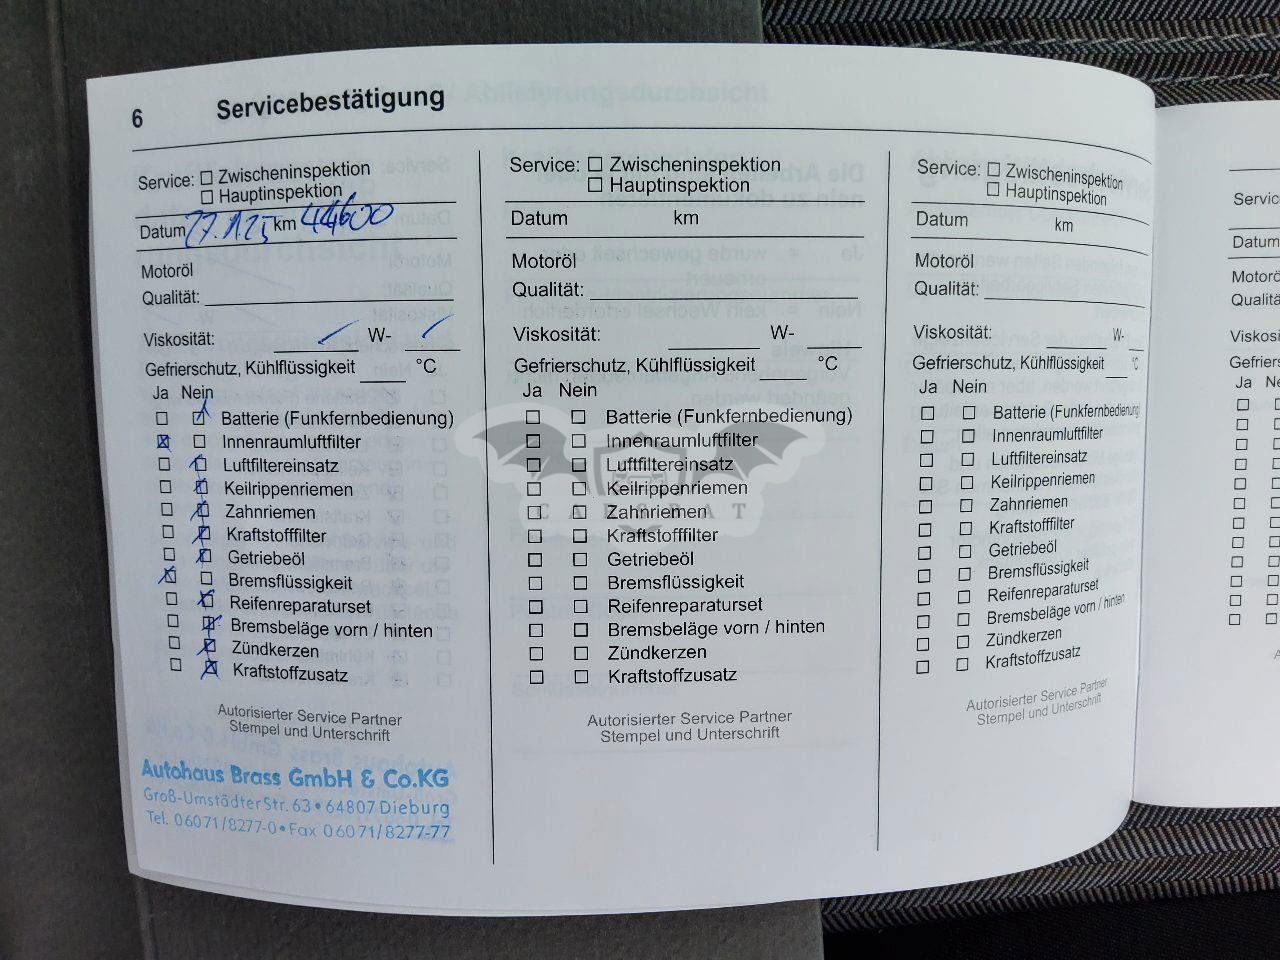 6 Servicebestätigung
Service: Zwischeninspektion
Hauptinspektion
Datum 27.1.25 km 44600
Motoröl
Qualität:
Viskosität: W-
Gefrierschutz, Kühlflüssigkeit °C
Ja Nein
Batterie (Funkfernbedienung)
Innenraumluftfilter
Luftfiltereinsatz
Keilrippenriemen
Zahnriemen
Kraftstofffilter
Getriebeöl
Bremsflüssigkeit
Reifenreparaturset
Bremsbeläge vorn / hinten
Zündkerzen
Kraftstoffzusatz
Autorisierter Service Partner
Stempel und Unterschrift
Autohaus Brass GmbH & Co.KG
Groß-Umstädter Str. 63 • 64807 Dieburg
Tel. 06071/8277-0 • Fax 06071/8277-77
Service: Zwischeninspektion
Hauptinspektion
Datum km
Motoröl
Qualität:
Viskosität: W-
Gefrierschutz, Kühlflüssigkeit °C
Ja Nein
Batterie (Funkfernbedienung)
Innenraumluftfilter
Luftfiltereinsatz
Keilrippenriemen
Zahnriemen
Kraftstofffilter
Getriebeöl
Bremsflüssigkeit
Reifenreparaturset
Bremsbeläge vorn / hinten
Zündkerzen
Kraftstoffzusatz
Autorisierter Service Partner
Stempel und Unterschrift
CARSBAT
Service: Zwischeninspektion
Hauptinspektion
Datum km
Motoröl
Qualität:
Viskosität: W-
Gefrierschutz, Kühlflüssigkeit °C
Ja Nein
Batterie (Funkfernbedienung)
Innenraumluftfilter
Luftfiltereinsatz
Keilrippenriemen
Zahnriemen
Kraftstofffilter
Getriebeöl
Bremsflüssigkeit
Reifenreparaturset
Bremsbeläge vorn / hinten
Zündkerzen
Kraftstoffzusatz
Autorisierter Service Partner
Stempel und Unterschrift
Ja Nein